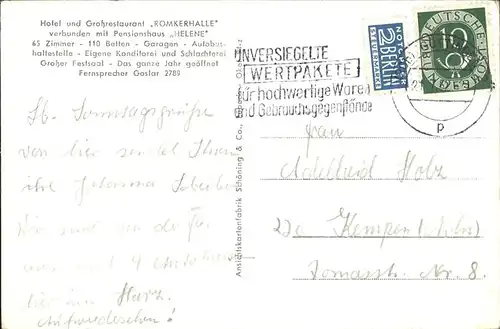 Hotel und Großrestaurant „ROMKERHALLE"
verbunden mit Pensionshaus „HELENE"
65 Zimmer - 110 Betten - Garagen - Autobus-
haltestelle - Eigene Konditorei und Schlachterei
Großer Festsaal - Das ganze Jahr geöffnet
Fernsprecher Goslar 2789
UNVERSIEGELTE
WERTPAKETE
für hochwertige Waren
und Gebrauchsgegenstände
NOTOPFER
2 BERLIN
STEUERMARKE
DEUTSCHE
10
p
Ansichtskartenfabrik Schöning & Co.
Lb. Sonntagsgrüße
von hier sendet Ihnen
ihre Johanna
Wir sind
4
hier im Harz.
Aufwiedersehen!
Frau
Adelheid Holz
Kempen (Köln)
Tomasstr. Nr. 8.